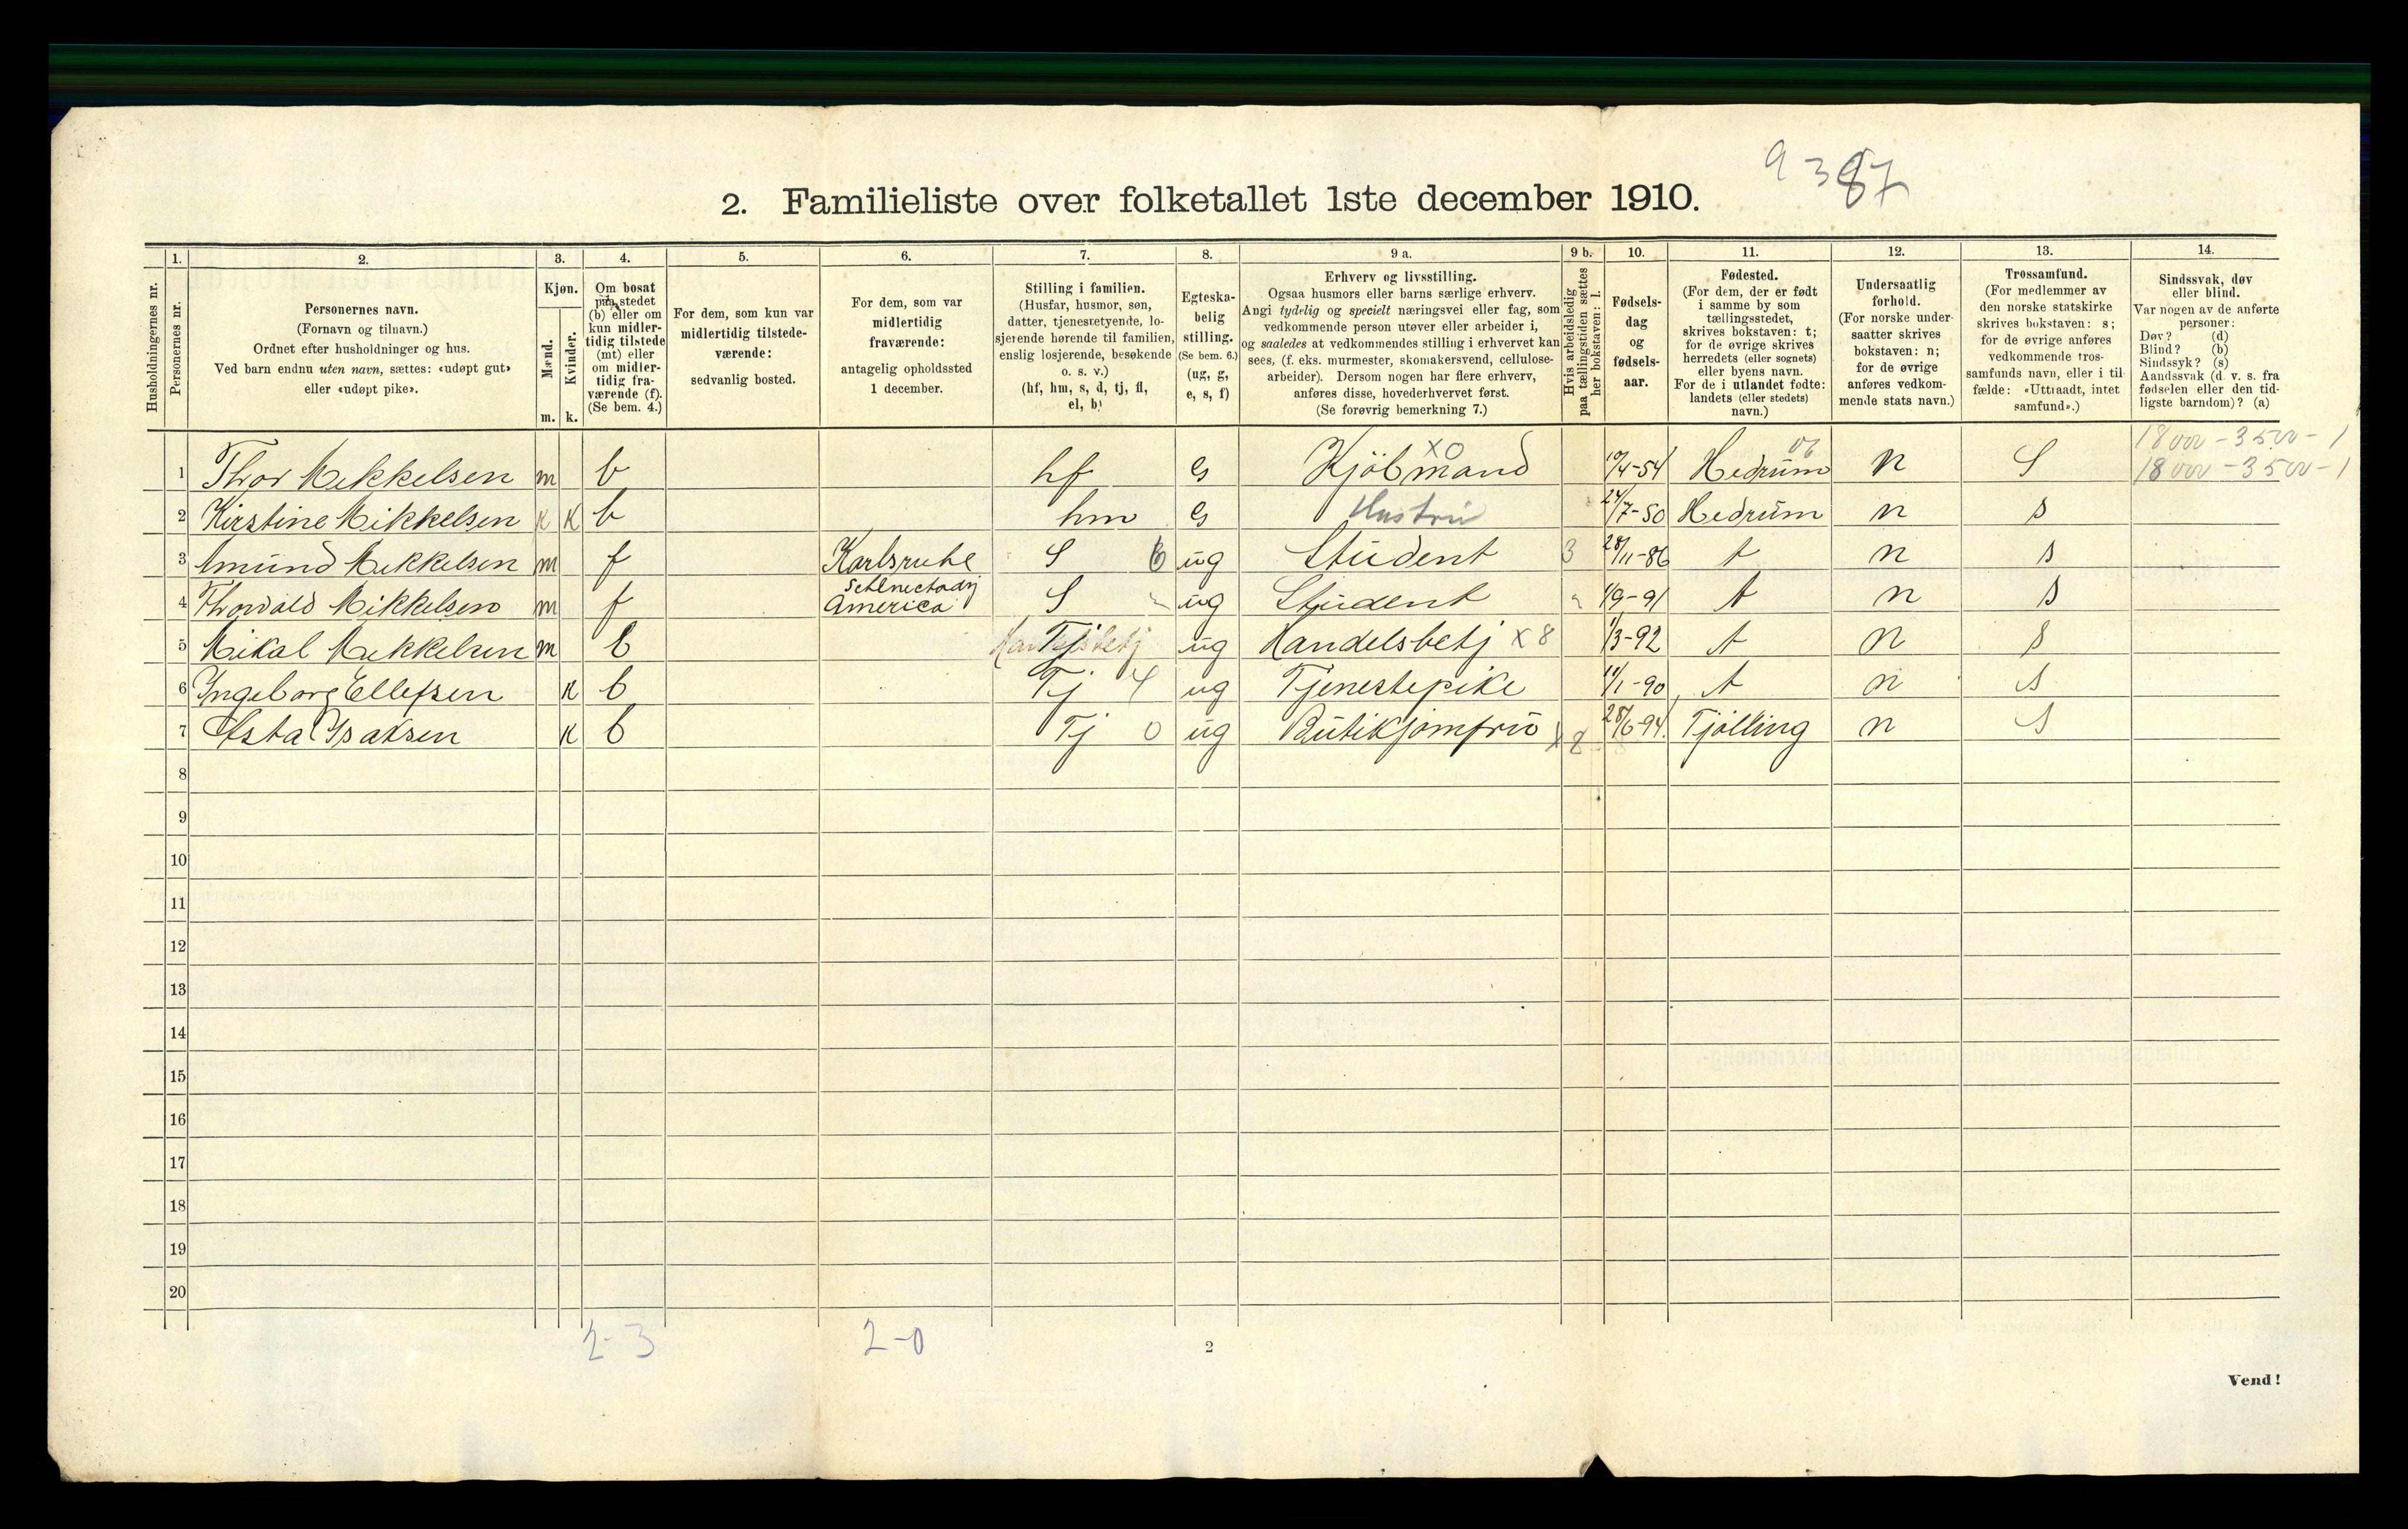 9387
2. Familieliste over folketallet 1ste december 1910.
Husholdningernes nr.
1. Personernes nr.
2. Personernes navn.
(Fornavn og tilnavn.)
Ordnet efter husholdninger og hus.
Ved barn endnu uten navn, sættes: «udøpt gut»
eller «udøpt pike».
3. Kjøn.
Mænd. m.
Kvinder. k.
4. Om bosat
paa stedet
(b) eller om
kun midler-
tidig tilstede
(mt) eller
om midler-
tidig fra-
værende (f).
(Se bem. 4.)
5. For dem, som kun var
midlertidig tilstede-
værende:
sedvanlig bosted.
6. For dem, som var
midlertidig
fraværende:
antagelig opholdssted
1 december.
7. Stilling i familien.
(Husfar, husmor, søn,
datter, tjenestetyende, lo-
sjerende hørende til familien,
enslig losjerende, besøkende
o. s. v.)
(hf, hm, s, d, tj, fl,
el, b)
8. Egteska-
belig
stilling.
(Se bem. 6.)
(ug, g,
e, s, f)
9 a. Erhverv og livsstilling.
Ogsaa husmors eller barns særlige erhverv.
Angi tydelig og specielt næringsvei eller fag, som
vedkommende person utøver eller arbeider i,
og saaledes at vedkommendes stilling i erhvervet kan
sees, (f. eks. murmester, skomakersvend, cellulose-
arbeider). Dersom nogen har flere erhverv,
anføres disse, hovederhvervet først.
(Se forøvrig bemerkning 7.)
9 b. Hvis arbeidsledig
paa tællingstiden sættes
her bokstaven: l.
10. Fødsels-
dag
og
fødsels-
aar.
11. Fødested.
(For dem, der er født
i samme by som
tællingsstedet,
skrives bokstaven: t;
for de øvrige skrives
herredets (eller sognets)
eller byens navn.
For de i utlandet fødte:
landets (eller stedets)
navn.)
12. Undersaatlig
forhold.
(For norske under-
saatter skrives
bokstaven: n;
for de øvrige
anføres vedkom-
mende stats navn.)
13. Trossamfund.
(For medlemmer av
den norske statskirke
skrives bokstaven: s;
for de øvrige anføres
vedkommende tros-
samfunds navn, eller i til
fælde: «Uttraadt, intet
samfund».)
14. Sindssvak, døv
eller blind.
Var nogen av de anførte
personer:
Døv? (d)
Blind? (b)
Sindssyk? (s)
Aandssvak (d. v. s. fra
fødselen eller den tid-
ligste barndom)? (a)
18000 - 3500 - 1
1 Thor Mikkelsen m b hf es Kjöbmand X0 10/4-54 Hedrum 06 n S 18000 - 3500 - 1
2 Kirstine Mikkelsen K K b hm es Hustru 24/7-50 Hedrum n s
3 Amund Mikkelsen m f Karlsruhe S 6 ug Student 3 28/11-86 t n s
4 Thorvald Mikkelsen m f Schenectady America S ug Student 1/9-91 t n s
5 Mikal Mikkelsen m b Tj ug Handelsbetj X 8 1/3-92 t n s
6 Ingeborg Ellefsen K b Tj 4 ug Tjenestepike 11/1-90 t n s
7 Asta Isaksen K b Tj 0 ug Butikjomfru X 8 28/6-94. Tjölling n S
8
9
10
11
12
13
14
15
16
17
18
19
20
2-3 2-0
2
Vend!